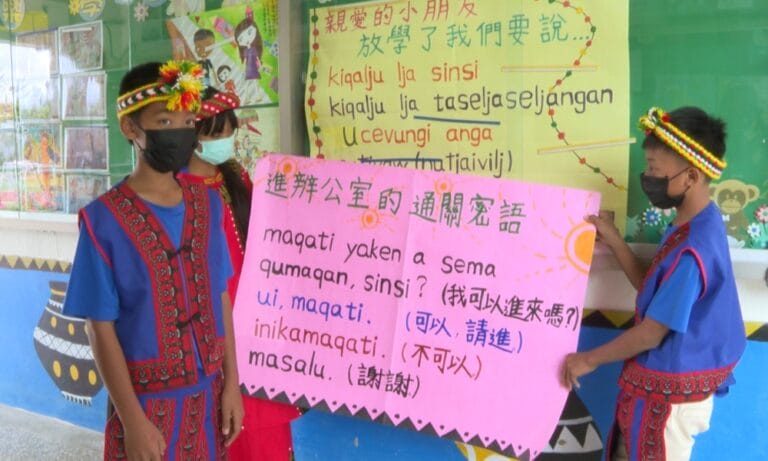 親愛的小朋友
放學了我們要說...
kiqalju lja sinsi
kiqalju lja taseljaseljangan
ucevungi anga
(natjaivilj)
進辦公室的通關密語
maqati yaken a sema
qumaqan, sinsi? (我可以進來嗎?)
ui, maqati. (可以,請進)
inikamaqati. (不可以)
masalu. (謝謝)